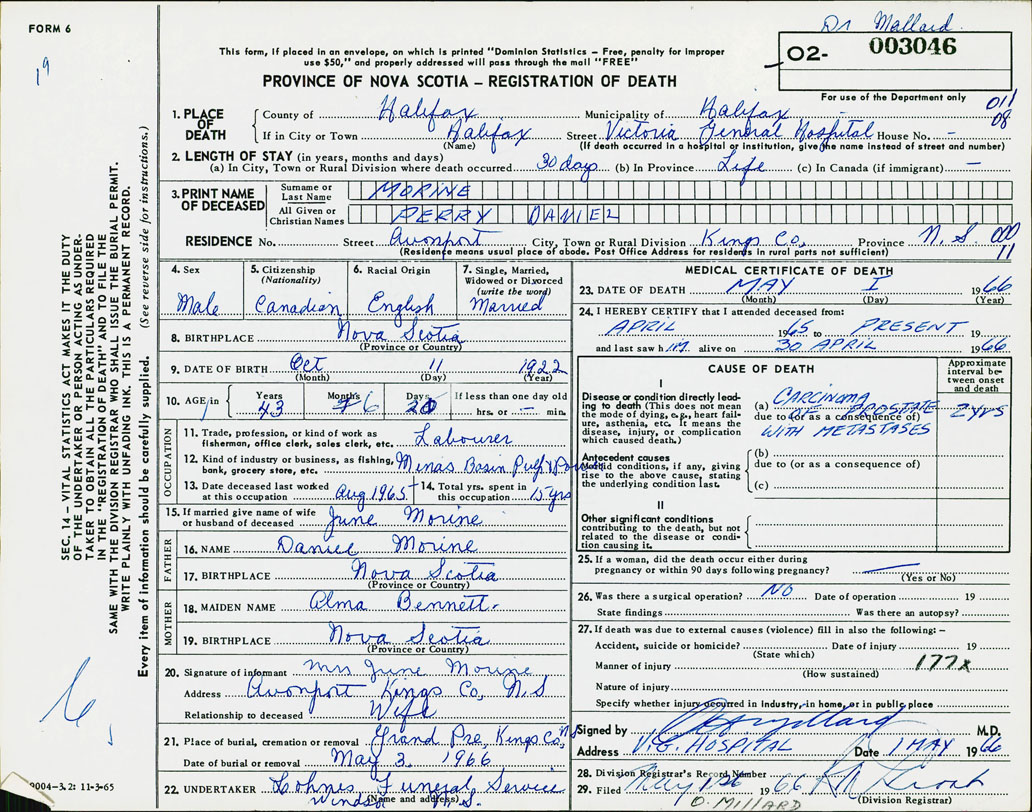 FORM 6
Dr Mallard
This form, if placed in an envelope, on which is printed "Dominion Statistics – Free, penalty for improper
use $50," and properly addressed will pass through the mail "FREE"
02- 003046
PROVINCE OF NOVA SCOTIA – REGISTRATION OF DEATH
For use of the Department only
19
011
08
1. PLACE OF DEATH
County of Halifax Municipality of Halifax
If in City or Town Halifax Street Victoria General Hospital House No. –
(Name) (If death occurred in a hospital or institution, give the name instead of street and number)
2. LENGTH OF STAY (in years, months and days)
(a) In City, Town or Rural Division where death occurred 30 days (b) In Province Life (c) In Canada (if immigrant) –
3. PRINT NAME OF DECEASED
Surname or Last Name MORINE
All Given or Christian Names PERRY DANIEL
RESIDENCE No. Street Avonport City, Town or Rural Division Kings Co, Province N.S. 000
(Residence means usual place of abode. Post Office Address for residents in rural parts not sufficient) 11
4. Sex Male
5. Citizenship (Nationality) Canadian
6. Racial Origin English
7. Single, Married, Widowed or Divorced (write the word) Married
8. BIRTHPLACE Nova Scotia
(Province or Country)
9. DATE OF BIRTH Oct 11 1922
(Month) (Day) (Year)
10. AGE in Years 43 Months 6 Days 20 If less than one day old hrs. or – min.
OCCUPATION
11. Trade, profession, or kind of work as fisherman, office clerk, sales clerk, etc. Labourer
12. Kind of industry or business, as fishing, bank, grocery store, etc. Minas Basin Pulp & Power
13. Date deceased last worked at this occupation Aug 1965
14. Total yrs. spent in this occupation 15 yrs
15. If married give name of wife or husband of deceased June Morine
FATHER
16. NAME Daniel Morine
17. BIRTHPLACE Nova Scotia
(Province or Country)
MOTHER
18. MAIDEN NAME Alma Bennett.
19. BIRTHPLACE Nova Scotia
(Province or Country)
20. Signature of informant Mrs June Morine
Address Avonport Kings Co, N.S
Relationship to deceased Wife
21. Place of burial, cremation or removal Grand Pre, Kings Co, NS
Date of burial or removal May 3, 1966
22. UNDERTAKER Lohnes Funeral Service
(Name and address) Windsor N.S.
MEDICAL CERTIFICATE OF DEATH
23. DATE OF DEATH MAY I 1966
(Month) (Day) (Year)
24. I HEREBY CERTIFY that I attended deceased from:
APRIL 1965 to PRESENT 19
and last saw him alive on 30 APRIL 1966
CAUSE OF DEATH
Approximate interval between onset and death
I
Disease or condition directly leading to death (This does not mean the mode of dying, e.g., heart failure, asthenia, etc. It means the disease, injury, or complication which caused death.)
(a) CARCINOMA
OF PROSTATE 2 yrs
due to (or as a consequence of)
WITH METASTASES
Antecedent causes
Morbid conditions, if any, giving rise to the above cause, stating the underlying condition last.
(b)
due to (or as a consequence of)
(c)
II
Other significant conditions
contributing to the death, but not related to the disease or condition causing it.
25. If a woman, did the death occur either during
pregnancy or within 90 days following pregnancy? —
(Yes or No)
26. Was there a surgical operation? NO Date of operation 19
State findings Was there an autopsy?
27. If death was due to external causes (violence) fill in also the following: –
Accident, suicide or homicide? Date of injury 19
(State which)
Manner of injury 177x
(How sustained)
Nature of injury
Specify whether injury occurred in Industry, in home, or in public place
Signed by M.D.
Address V.G. HOSPITAL Date 1 MAY 1966
28. Division Registrar's Record Number
29. Filed May 1st 1966
O. MILLARD (Division Registrar)
SEC. 14 – VITAL STATISTICS ACT MAKES IT THE DUTY
OF THE UNDERTAKER OR PERSON ACTING AS UNDER-
TAKER TO OBTAIN ALL THE PARTICULARS REQUIRED
IN THE "REGISTRATION OF DEATH" AND TO FILE THE
SAME WITH THE DIVISION REGISTRAR WHO SHALL ISSUE THE BURIAL PERMIT.
WRITE PLAINLY WITH UNFADING INK. THIS IS A PERMANENT RECORD.
Every item of information should be carefully supplied. (See reverse side for instructions.)
9004-3.21 11-3-65